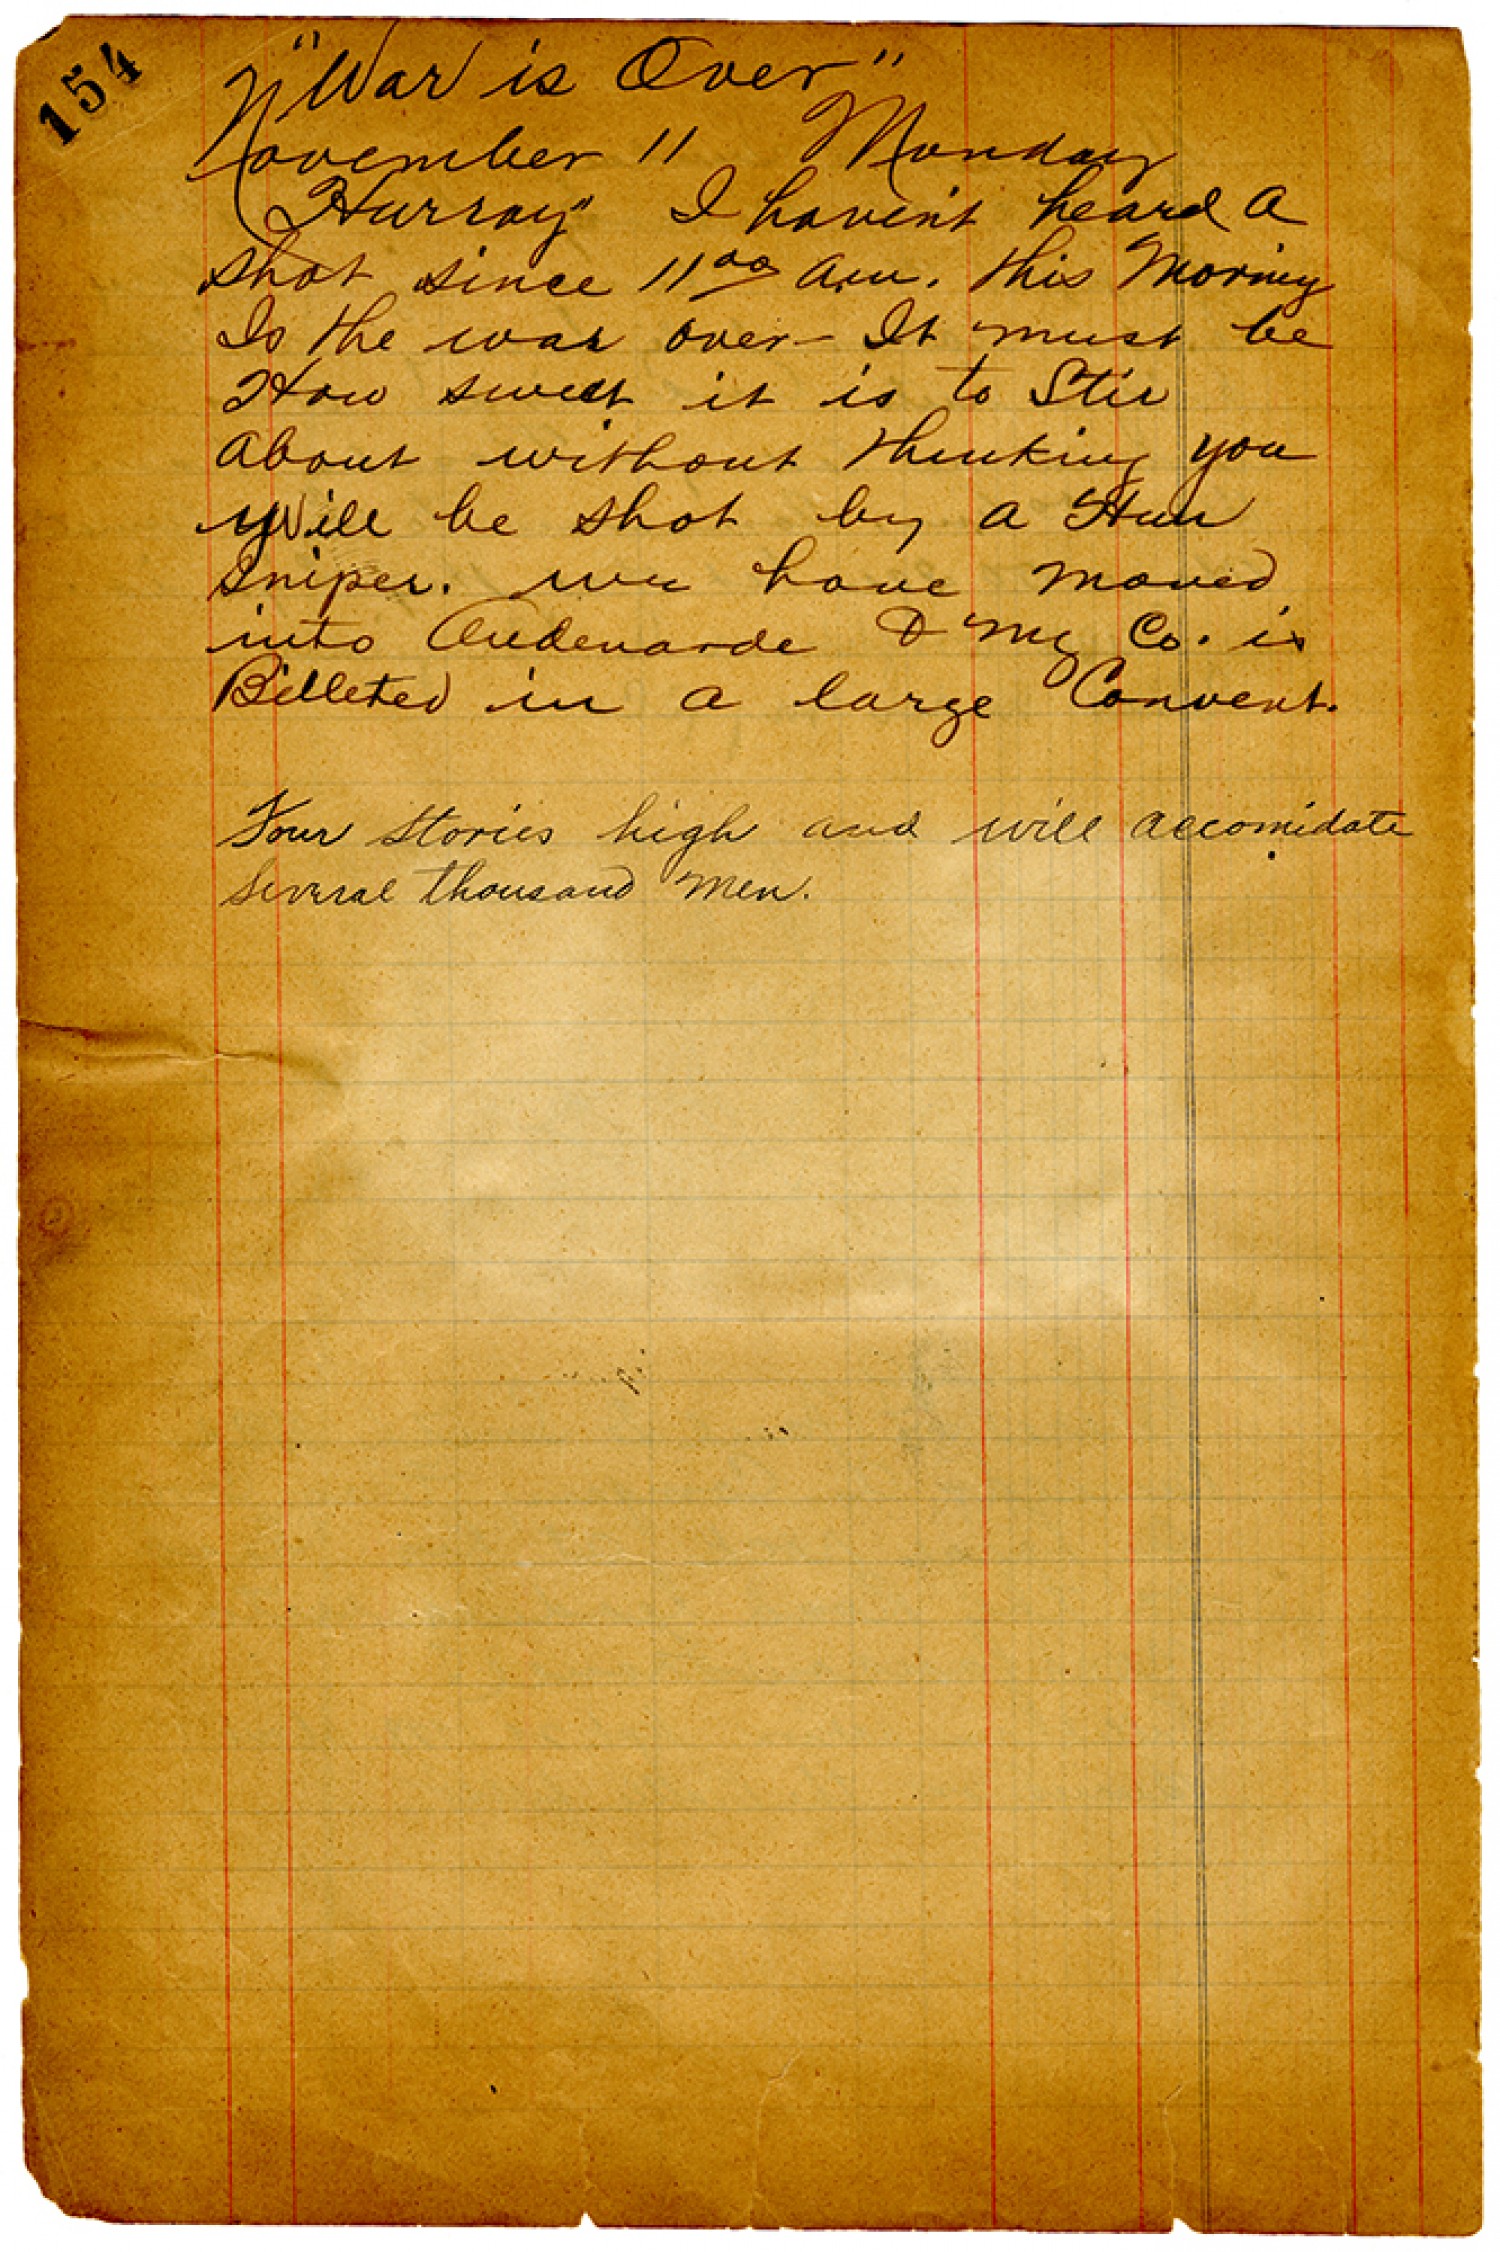 154
"War is Over"
November 11 Monday
"Hurray" I haven't heard a
shot since 11 00 a.m. this Morning
Is the war over – It must be
How sweet it is to Stir
about without thinking you
Will be shot by a Hun
Sniper. we have moved
into Audenarde & my Co. is
Billeted in a large Convent.
Four Stories high and will accomidate
several thousand men.